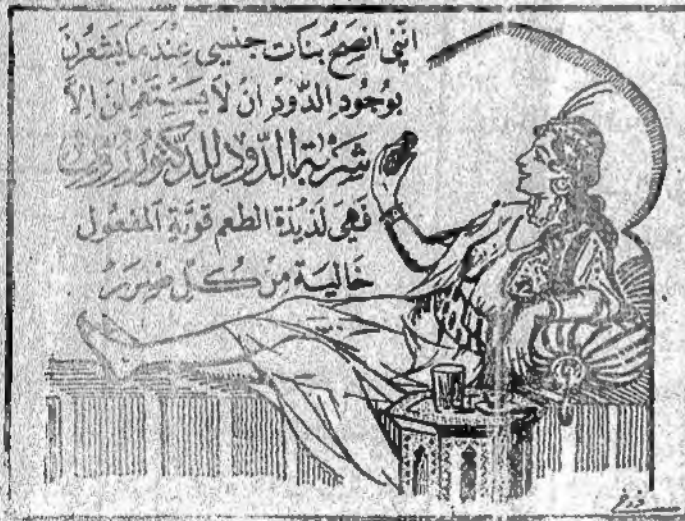 انني انصح بنات جنسي عندما يشعرن
بوجود الدود ان لا يستعملن الا
شربة الدود للدكتور
فهي لذيذة الطعم قوية المفعول
خالية من كل ضرر